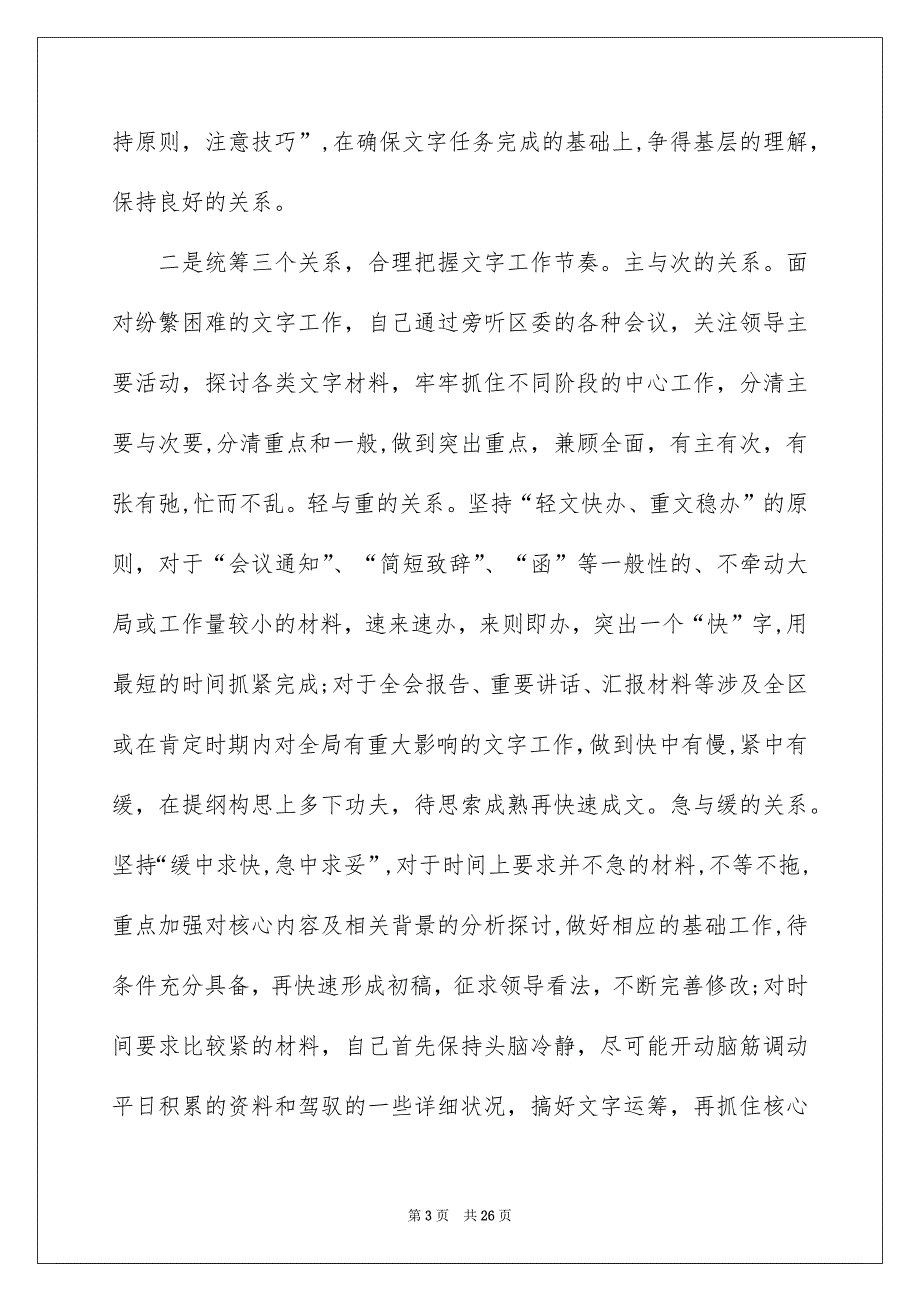 持原则，注意技巧”,在确保文字任务完成的基础上,争得基层的理解，
保持良好的关系。
二是统筹三个关系，合理把握文字工作节奏。主与次的关系。面
对纷繁困难的文字工作，自己通过旁听区委的各种会议，关注领导主
要活动，探讨各类文字材料，牢牢抓住不同阶段的中心工作，分清主
要与次要,分清重点和一般,做到突出重点，兼顾全面，有主有次，有
张有弛,忙而不乱。轻与重的关系。坚持“轻文快办、重文稳办”的原
则，对于“会议通知”、“简短致辞”、“函”等一般性的、不牵动大
局或工作量较小的材料，速来速办，来则即办，突出一个“快”字,用
最短的时间抓紧完成;对于全会报告、重要讲话、汇报材料等涉及全区
或在肯定时期内对全局有重大影响的文字工作，做到快中有慢,紧中有
缓，在提纲构思上多下功夫，待思索成熟再快速成文。急与缓的关系。
坚持“缓中求快,急中求妥”,对于时间上要求并不急的材料,不等不拖,
重点加强对核心内容及相关背景的分析探讨,做好相应的基础工作,待
条件充分具备，再快速形成初稿，征求领导看法，不断完善修改;对时
间要求比较紧的材料，自己首先保持头脑冷静，尽可能开动脑筋调动
平日积累的资料和驾驭的一些详细状况，搞好文字运筹，再抓住核心
第 3 页 共 26 页